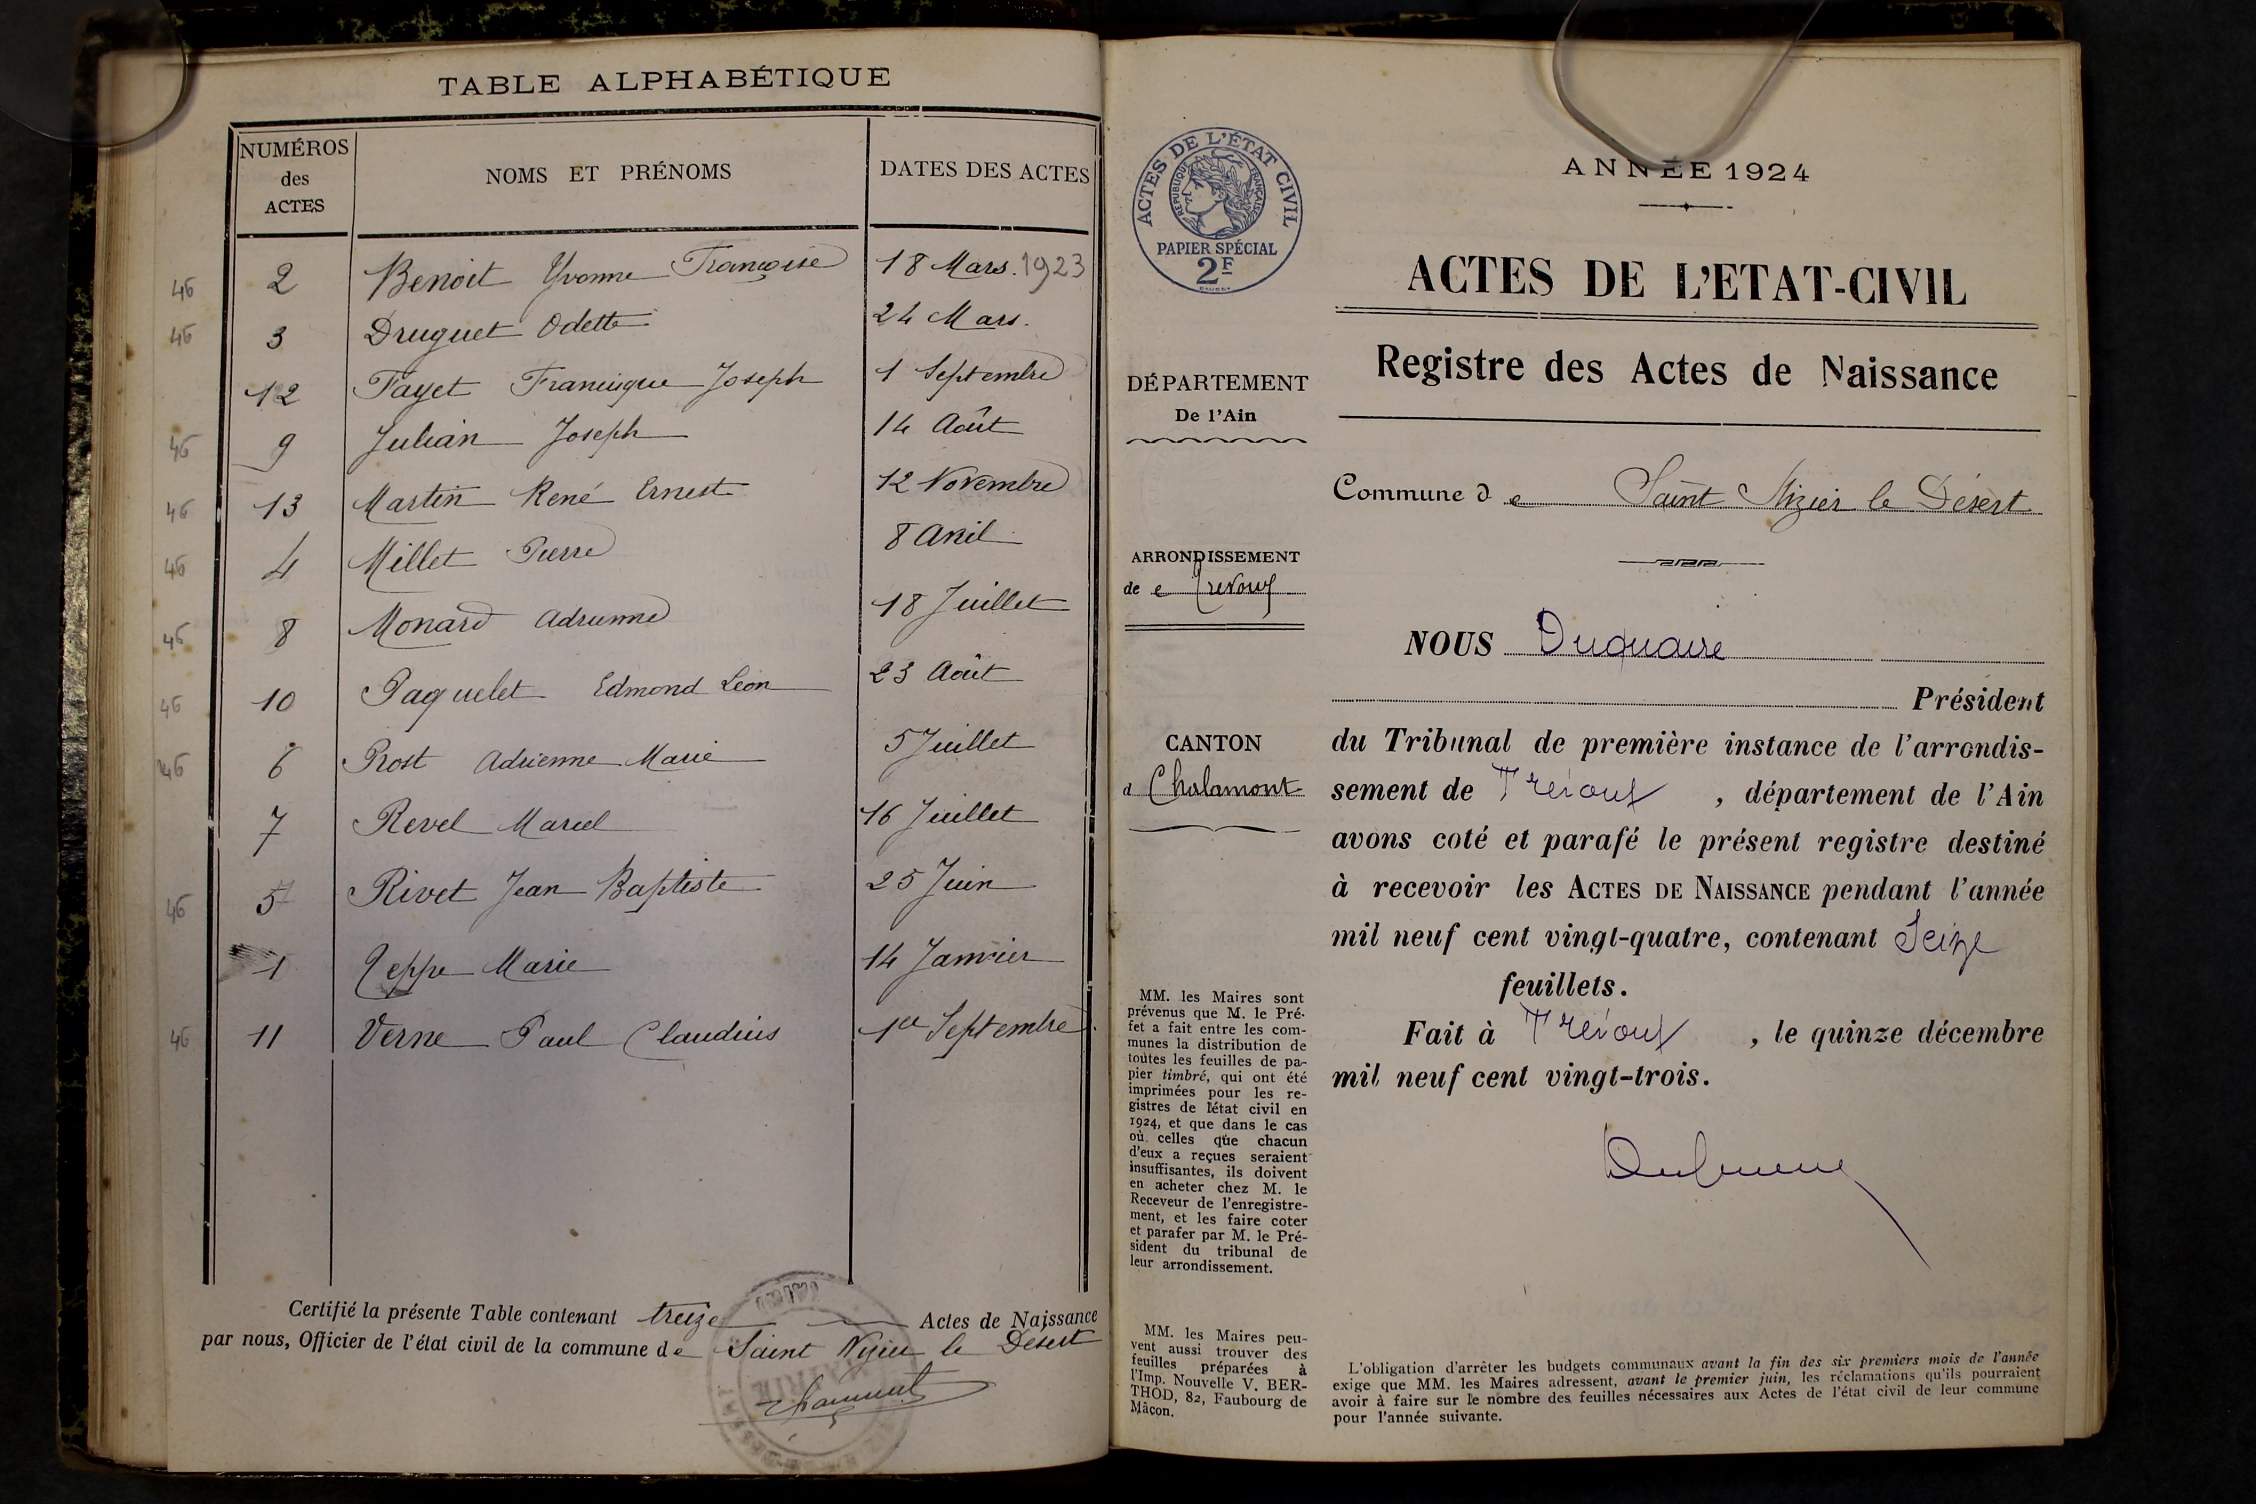 TABLE ALPHABÉTIQUE
NUMÉROS des ACTES NOMS ET PRÉNOMS DATES DES ACTES
46 2 Benoit Yvonne Françoise 18 Mars. 1923
46 3 Druguet Odette 24 Mars.
12 Fayet Francisque Joseph 1 Septembre
46 9 Julian Joseph 14 Août
46 13 Martin René Ernest 12 Novembre
46 4 Millet Pierre 8 Avril
46 8 Monard Adrienne 18 Juillet
46 10 Paquelet Edmond Léon 23 Août
46 6 Prost Adrienne Marie 5 Juillet
7 Revel Marcel 16 Juillet
46 5 Rivet Jean Baptiste 25 Juin
1 Teppe Marie 14 Janvier
46 11 Verne Paul Claudius 1er Septembre.
Certifié la présente Table contenant treize Actes de Naissance
par nous, Officier de l'état civil de la commune de Saint Nizier le Désert
MAIRIE
ACTES DE L'ÉTAT CIVIL
RÉPUBLIQUE FRANÇAISE
PAPIER SPÉCIAL
2F
DÉPARTEMENT
De l'Ain
ARRONDISSEMENT
de e Trévoux
CANTON
d Chalamont
MM. les Maires sont
prévenus que M. le Pré-
fet a fait entre les com-
munes la distribution de
toutes les feuilles de pa-
pier timbré, qui ont été
imprimées pour les re-
gistres de l'état civil en
1924, et que dans le cas
où celles que chacun
d'eux a reçues seraient
insuffisantes, ils doivent
en acheter chez M. le
Receveur de l'enregistre-
ment, et les faire coter
et parafer par M. le Pré-
sident du tribunal de
leur arrondissement.
MM. les Maires peu-
vent aussi trouver des
feuilles préparées à
l'Imp. Nouvelle V. BER-
THOD, 82, Faubourg de
Mâcon.
ANNÉE 1924
ACTES DE L'ETAT-CIVIL
Registre des Actes de Naissance
Commune d e Saint Nizier le Désert
NOUS Duquaire
Président
du Tribunal de première instance de l'arrondis-
sement de Trévoux, département de l'Ain
avons coté et parafé le présent registre destiné
à recevoir les ACTES DE NAISSANCE pendant l'année
mil neuf cent vingt-quatre, contenant Seize
feuillets.
Fait à Trévoux, le quinze décembre
mil neuf cent vingt-trois.
L'obligation d'arrêter les budgets communaux avant la fin des six premiers mois de l'année
exige que MM. les Maires adressent, avant le premier juin, les réclamations qu'ils pourraient
avoir à faire sur le nombre des feuilles nécessaires aux Actes de l'état civil de leur commune
pour l'année suivante.